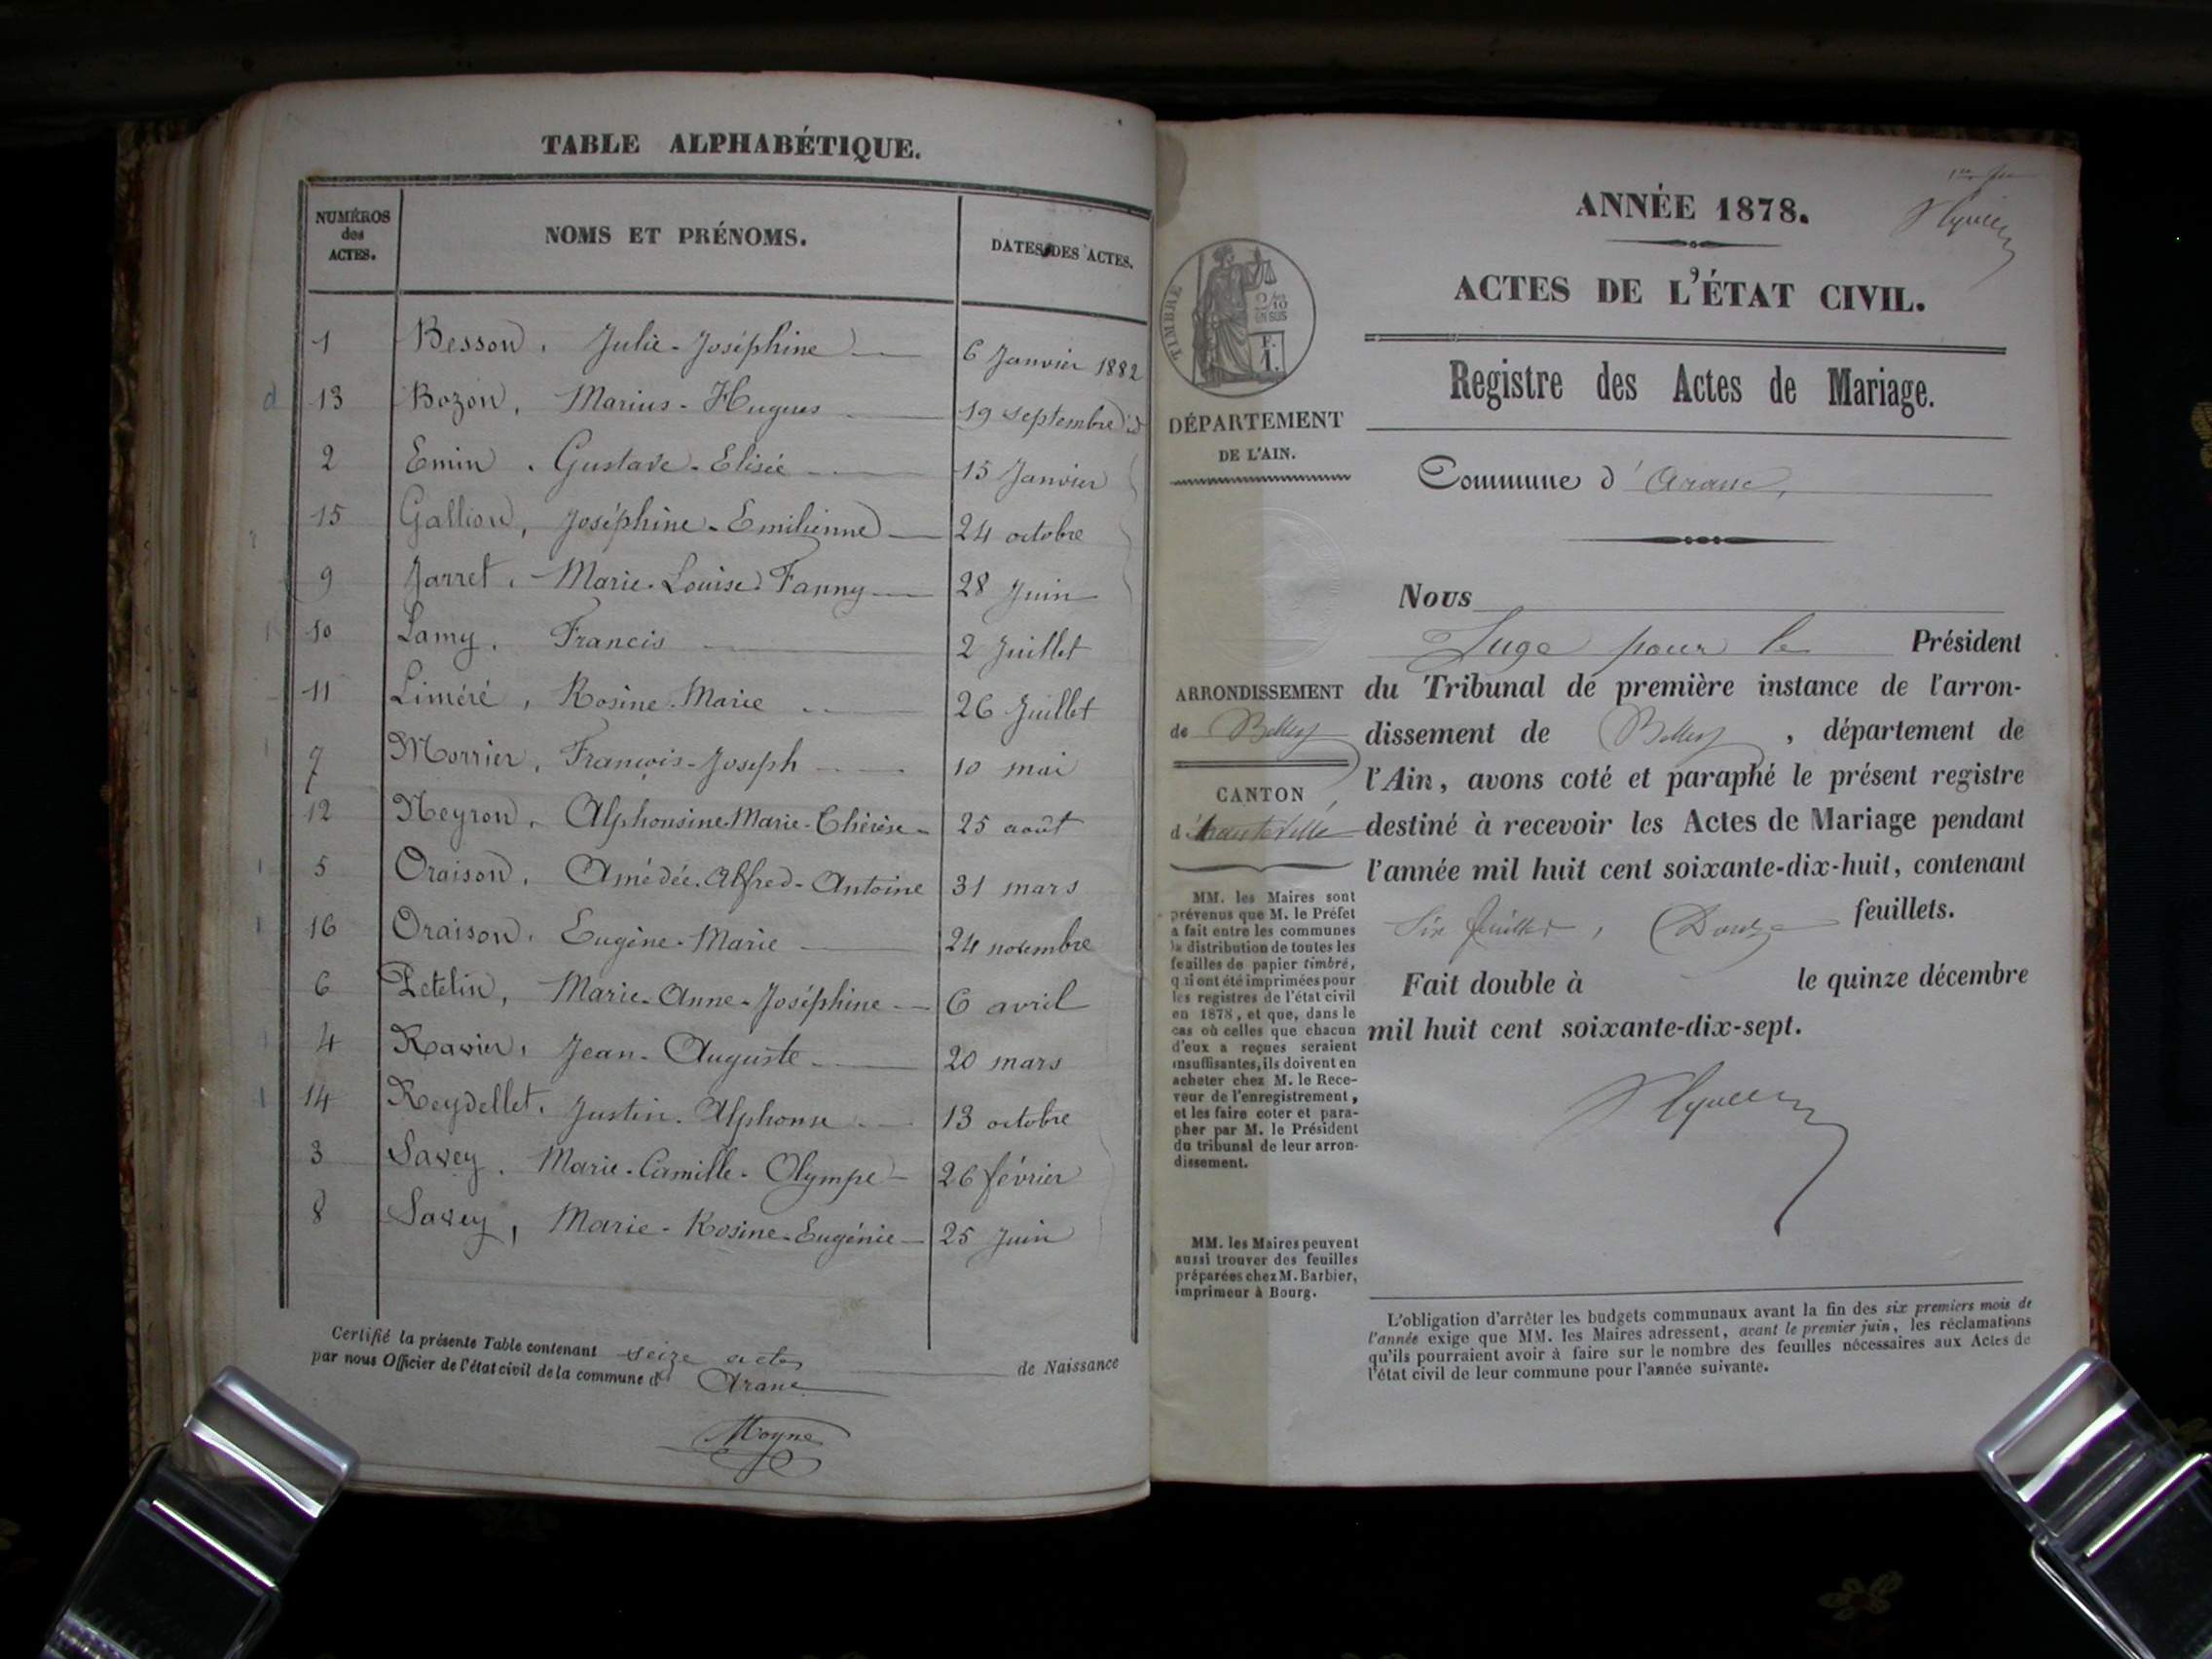 TABLE ALPHABÉTIQUE.
NUMÉROS des ACTES.
NOMS ET PRÉNOMS.
DATES DES ACTES.
1 Besson, Julie-Joséphine 6 Janvier 1882
13 Bozon, Marius-Hugues 19 septembre id
2 Emin, Gustave-Elisée 15 Janvier
15 Gallion, Joséphine-Emilienne 24 octobre
9 Jarret, Marie-Louise-Fanny 28 Juin
10 Lamy, Francis 2 Juillet
11 Liméré, Rosine-Marie 26 Juillet
7 Morrier, François-Joseph 10 mai
12 Neyron, Alphonsine-Marie-Thérèse 25 août
5 Oraison, Amédée-Alfred-Antoine 31 mars
16 Oraison, Eugène-Marie 24 novembre
6 Petelin, Marie-Anne-Joséphine 6 avril
4 Ravier, Jean-Auguste 20 mars
14 Reydellet, Justin-Alphonse 13 octobre
3 Savey, Marie-Camille-Olympe 26 février
8 Savey, Marie-Rosine-Eugénie 25 Juin
Certifié la présente Table contenant seize actes de Naissance
par nous Officier de l'état civil de la commune d' Aranc
Moyne
ANNÉE 1878.
ACTES DE L'ÉTAT CIVIL.
TIMBRE
2/10
EN SUS
F.
1.
Registre des Actes de Mariage.
DÉPARTEMENT
DE L'AIN.
Commune d'Aranc,
Nous
Juge pour le Président
du Tribunal de première instance de l'arron-
dissement de Belley, département de
l'Ain, avons coté et paraphé le présent registre
destiné à recevoir les Actes de Mariage pendant
l'année mil huit cent soixante-dix-huit, contenant
Six feuilles, Douze feuillets.
Fait double à le quinze décembre
mil huit cent soixante-dix-sept.
ARRONDISSEMENT
de Belley
CANTON
d'hauteville
MM. les Maires sont
prévenus que M. le Préfet
a fait entre les communes
la distribution de toutes les
feuilles de papier timbré,
qui ont été imprimées pour
les registres de l'état civil
en 1878, et que, dans le
cas où celles que chacun
d'eux a reçues seraient
insuffisantes, ils doivent en
acheter chez M. le Rece-
veur de l'enregistrement,
et les faire coter et para-
pher par M. le Président
du tribunal de leur arron-
dissement.
MM. les Maires peuvent
aussi trouver des feuilles
préparées chez M. Barbier,
imprimeur à Bourg.
L'obligation d'arrêter les budgets communaux avant la fin des six premiers mois de
l'année exige que MM. les Maires adressent, avant le premier juin, les réclamations
qu'ils pourraient avoir à faire sur le nombre des feuilles nécessaires aux Actes de
l'état civil de leur commune pour l'année suivante.